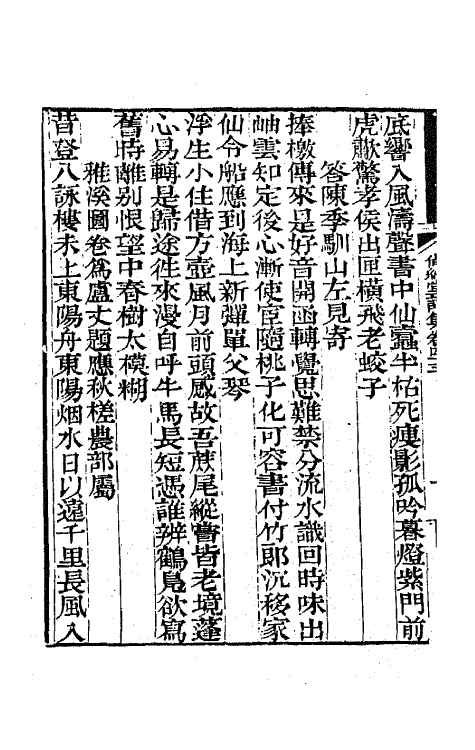 底響入風濤聲書中仙蠹半枯死瘦影孤吟暮燈紫門前
虎歗驚孝侯出匣橫飛老蛟子
答陳季馴山左見寄
捧檄傳來是好音開函轉覺思難禁分流水識回時味出
岫雲知定後心漸使宦隨桃子化可容書付竹郎沉移家
仙令船應到海上新彈單父琴
浮生小住借方壺風月前頭感故吾蔗尾縱甞皆老境蓬
心易轉是歸途徃來漫自呼牛馬長短憑誰辨鶴鳧欲寫
舊時離別恨望中春樹太模糊
雅溪圖卷爲盧丈題應秋槎農部屬
昔登八詠樓未上東陽舟東陽烟水日以遠千里長風入